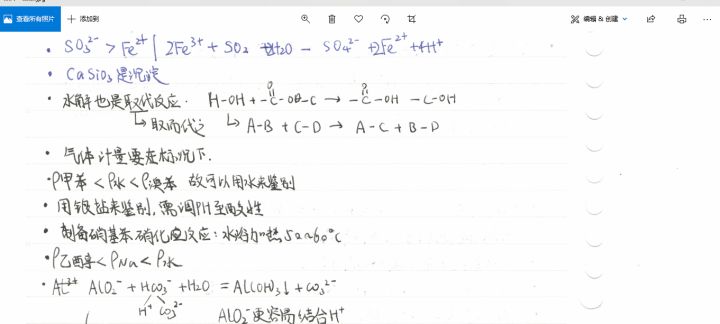 查看所有照片 + 添加到 编辑 & 创建
· SO₃²⁻ > Fe²⁺ | 2Fe³⁺ + SO₂ + 2H₂O — SO₄²⁻ + 2Fe²⁺ + 4H⁺
· CaSiO₃是沉淀
· 水解也是取代反应. H-OH + -C-O-C → -C-OH -C-OH
O O
↳ 取而代之 ↳ A-B + C-D → A-C + B-D
· 气体计量要在标况下.
· ρ甲苯 < ρ水 < ρ溴苯 故可以用水来鉴别
· 用银盐来鉴别,需调PH至酸性
· 制备硝基苯硝化反应:水浴加热50~60°C
· ρ乙醇 < ρNa < ρ水
· AlO₂⁻ + HCO₃⁻ + H₂O = Al(OH)₃↓ + CO₃²⁻
H⁺ CO₃²⁻ AlO₂⁻更容易结合H⁺